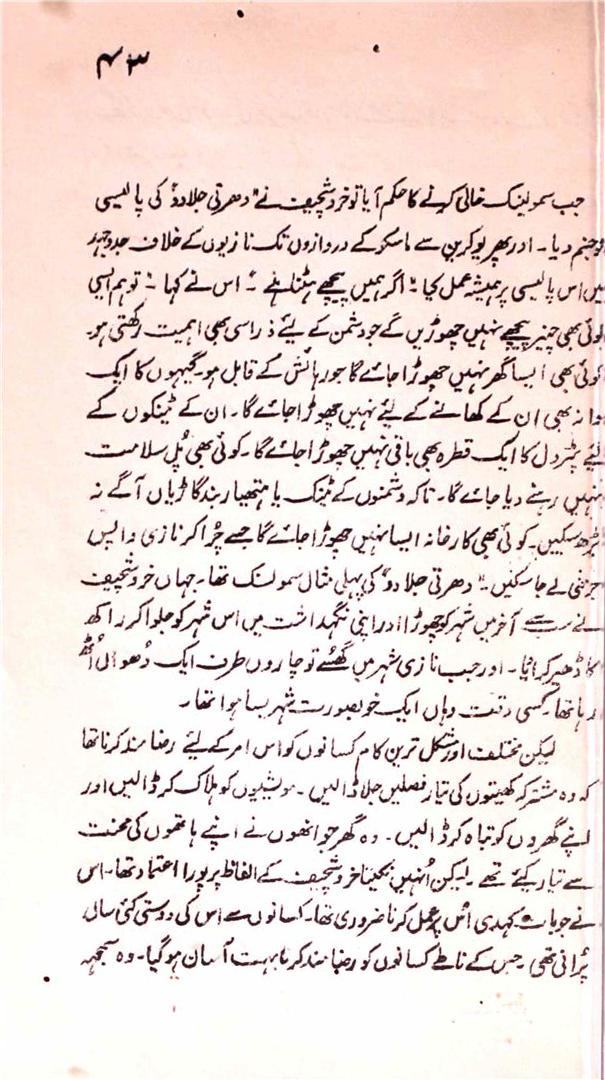 ۴۳
جب سمولینک خالی کرنے کا حکم آیا تو خروشچیف نے "دھرتی جلا دو" کی پالیسی
کو جنم دیا۔ اور پھر یوکرین سے ماسکو کے دروازوں تک نازیوں کے خلاف جدوجہد
میں اس پالیسی پر ہمیشہ عمل کیا۔ "اگر ہمیں پیچھے ہٹنا ہے" اس نے کہا۔ "تو ہم ایسی
کوئی بھی چیز پیچھے نہیں چھوڑیں گے جو دشمن کے لیئے ذرا سی بھی اہمیت رکھتی ہو۔
کوئی بھی ایسا گھر نہیں چھوڑا جائے گا جو رہائش کے قابل ہو۔ گیہوں کا ایک
دانہ بھی ان کے کھانے کے لیئے نہیں چھوڑا جائے گا۔ ان کے ٹینکوں کے
لئے پٹرول کا ایک قطرہ بھی باقی نہیں چھوڑا جائے گا۔ کوئی بھی پُل سلامت
نہیں رہنے دیا جائے گا۔ تاکہ دشمنوں کے ٹینک یا ہتھیار بند گاڑیاں آگے نہ
بڑھ سکیں۔ کوئی بھی کارخانہ ایسا نہیں چھوڑا جائے گا جسے چُرا کر نازی واپس
جرمنی لے جا سکیں۔" دھرتی جلا دو" کی پہلی مثال سمولنسک تھا۔ جہاں خروشچیف
نے سب سے آخر میں شہر کو چھوڑا اور اپنی نگہداشت میں اس شہر کو جلوا کر راکھ
کا ڈھیر کرا دیا۔ اور جب نازی شہر میں گھسے تو چاروں طرف ایک دُھواں اُٹھ
رہا تھا۔ کسی وقت وہاں ایک خوبصورت شہر بسا ہوا تھا۔
لیکن مختلف اور مشکل ترین کام کسانوں کو اس امر کے لیئے رضامند کرنا تھا
کہ وہ مشترکہ کھیتوں کی تیار فصلیں جلا ڈالیں۔ مویشیوں کو ہلاک کر ڈالیں اور
اپنے گھروں کو تباہ کر ڈالیں۔ وہ گھر جو انھوں نے اپنے ہاتھوں کی محنت
سے تیار کیئے تھے۔ لیکن اُنہیں نکیتا خروشچیف کے الفاظ پر پورا اعتماد تھا۔ اس
نے جو بات کہدی اُس پر عمل کرنا ضروری تھا۔ کسانوں سے اس کی دوستی کئی سال
پُرانی تھی۔ جس کے ناطے کسانوں کو رضامند کرنا بہت آسان ہو گیا۔ وہ سمجھ